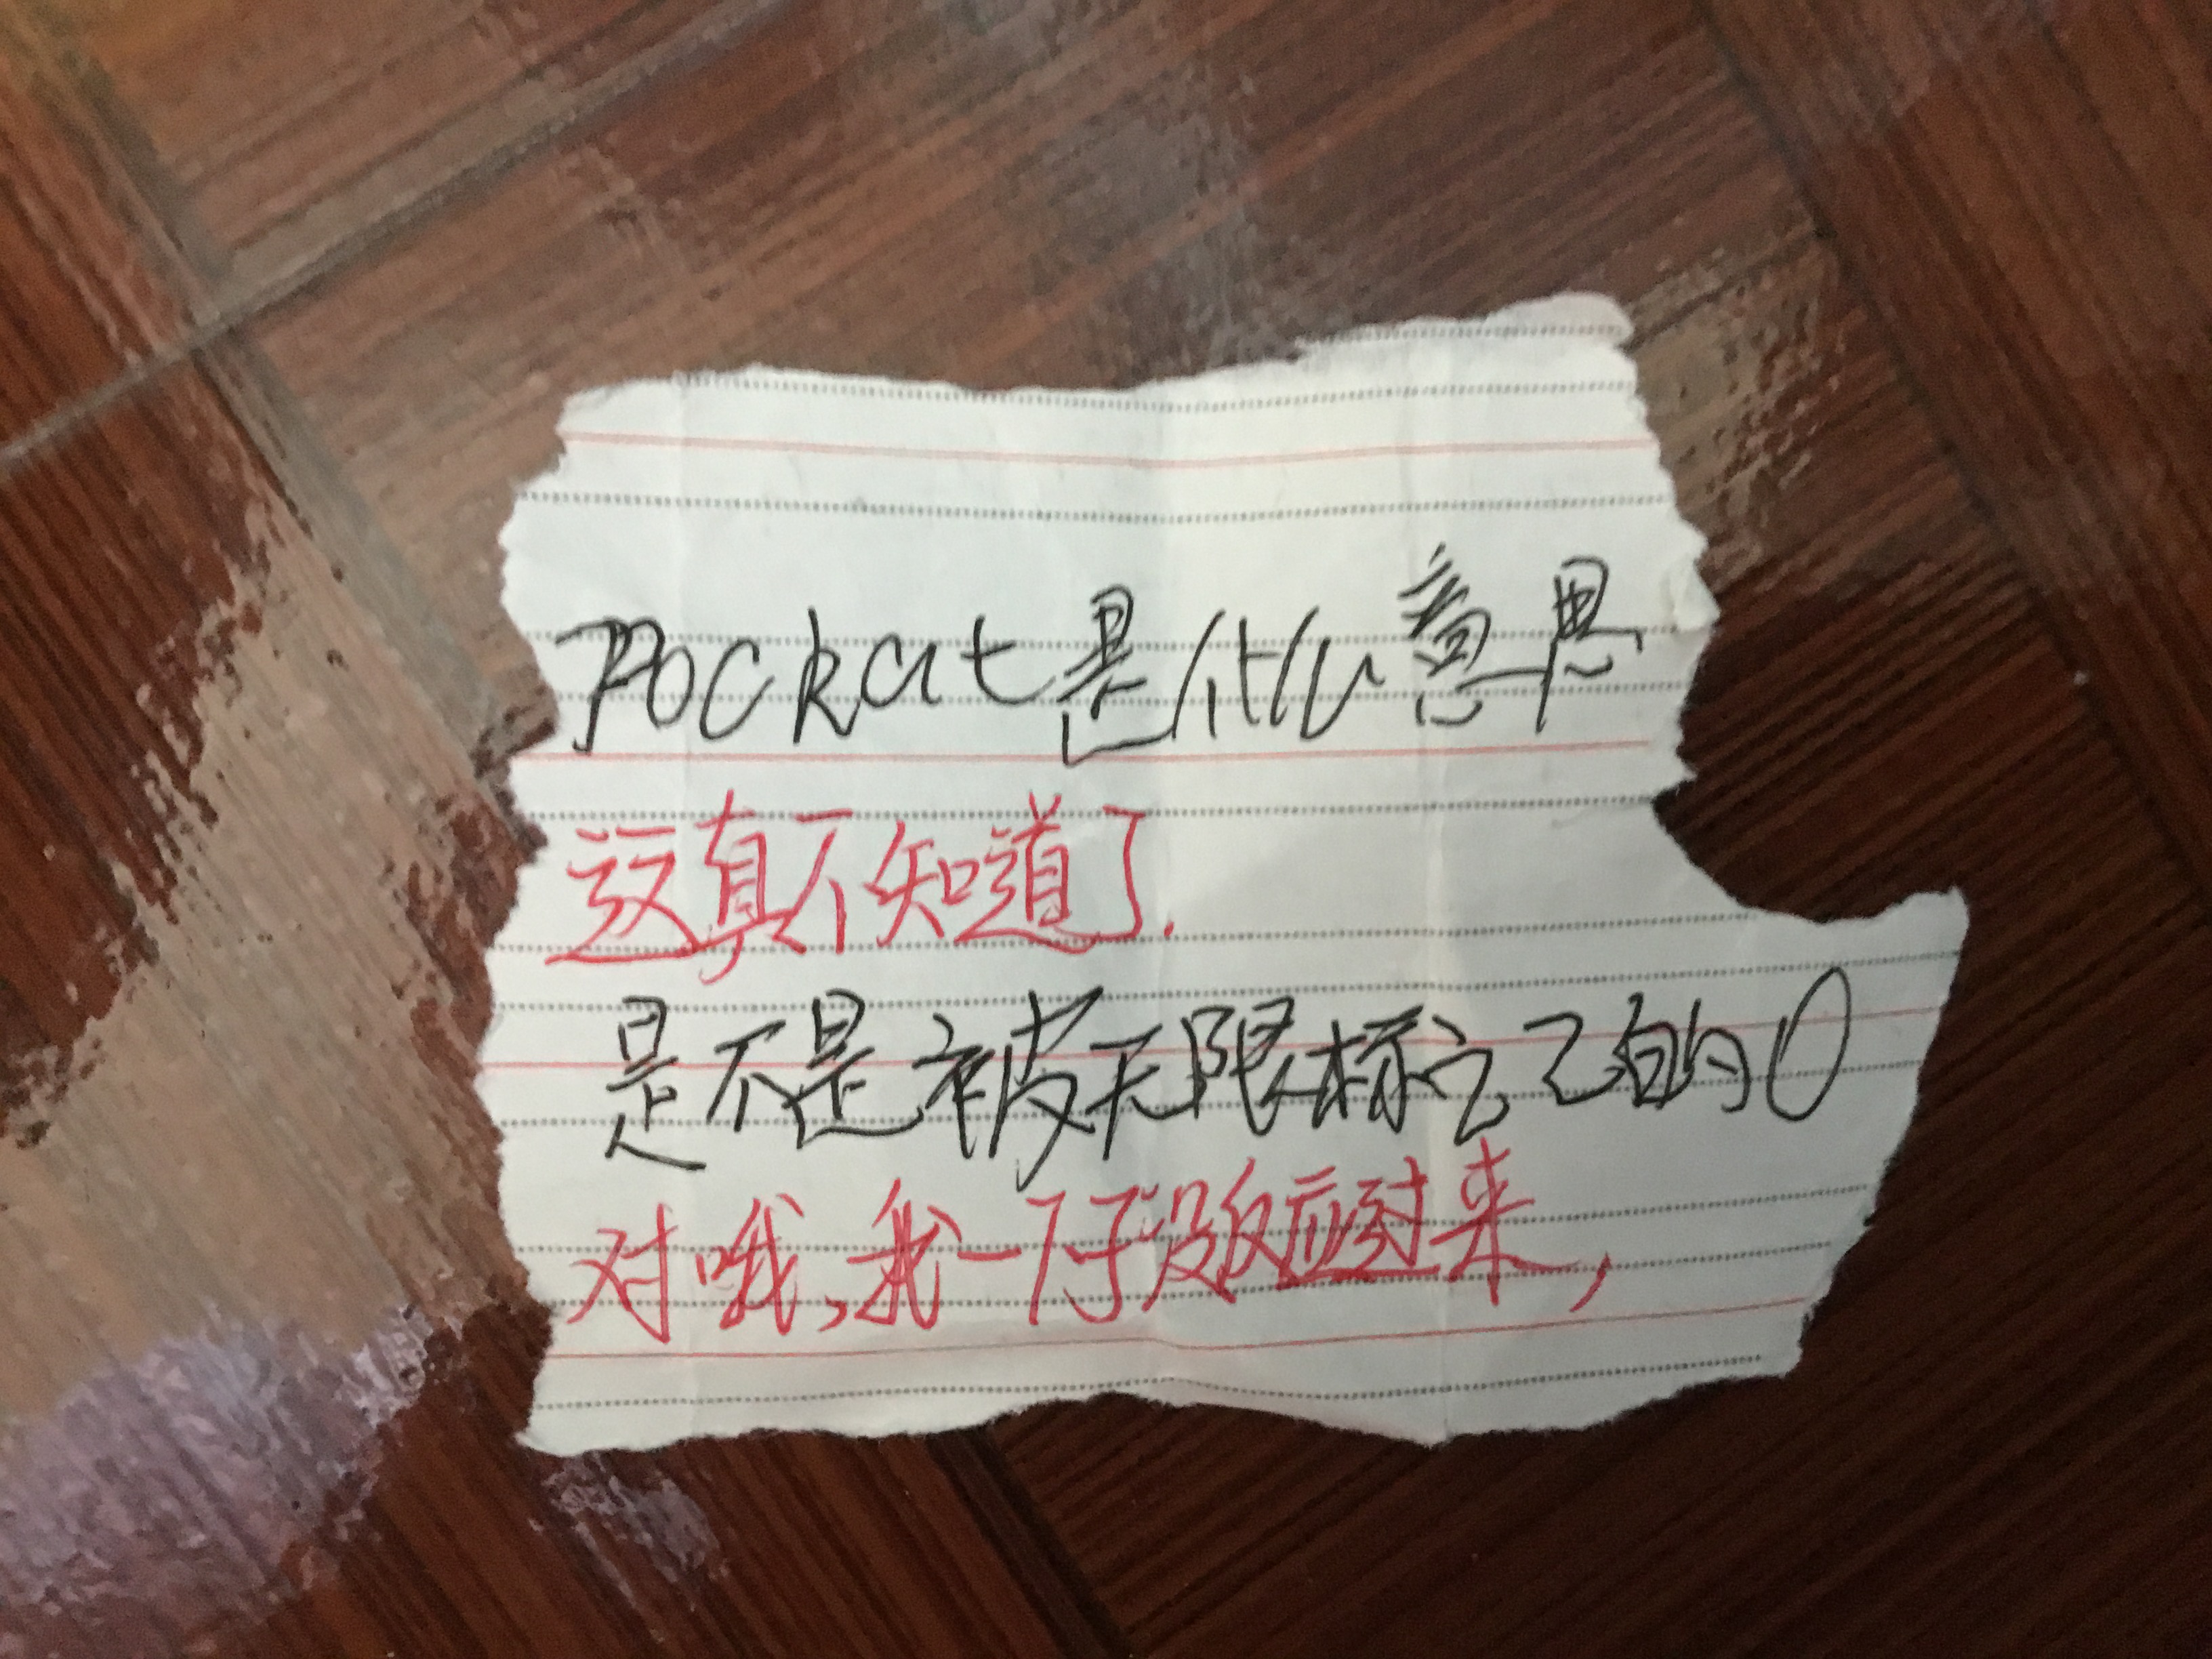 Pockat是什么意思
这真不知道了.
是不是被无限标记了的0
对哦,我一下子没反应过来,